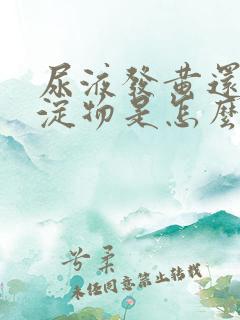 尿液發黃還
淀物是怎麼
兮柔
未经同意禁止转载